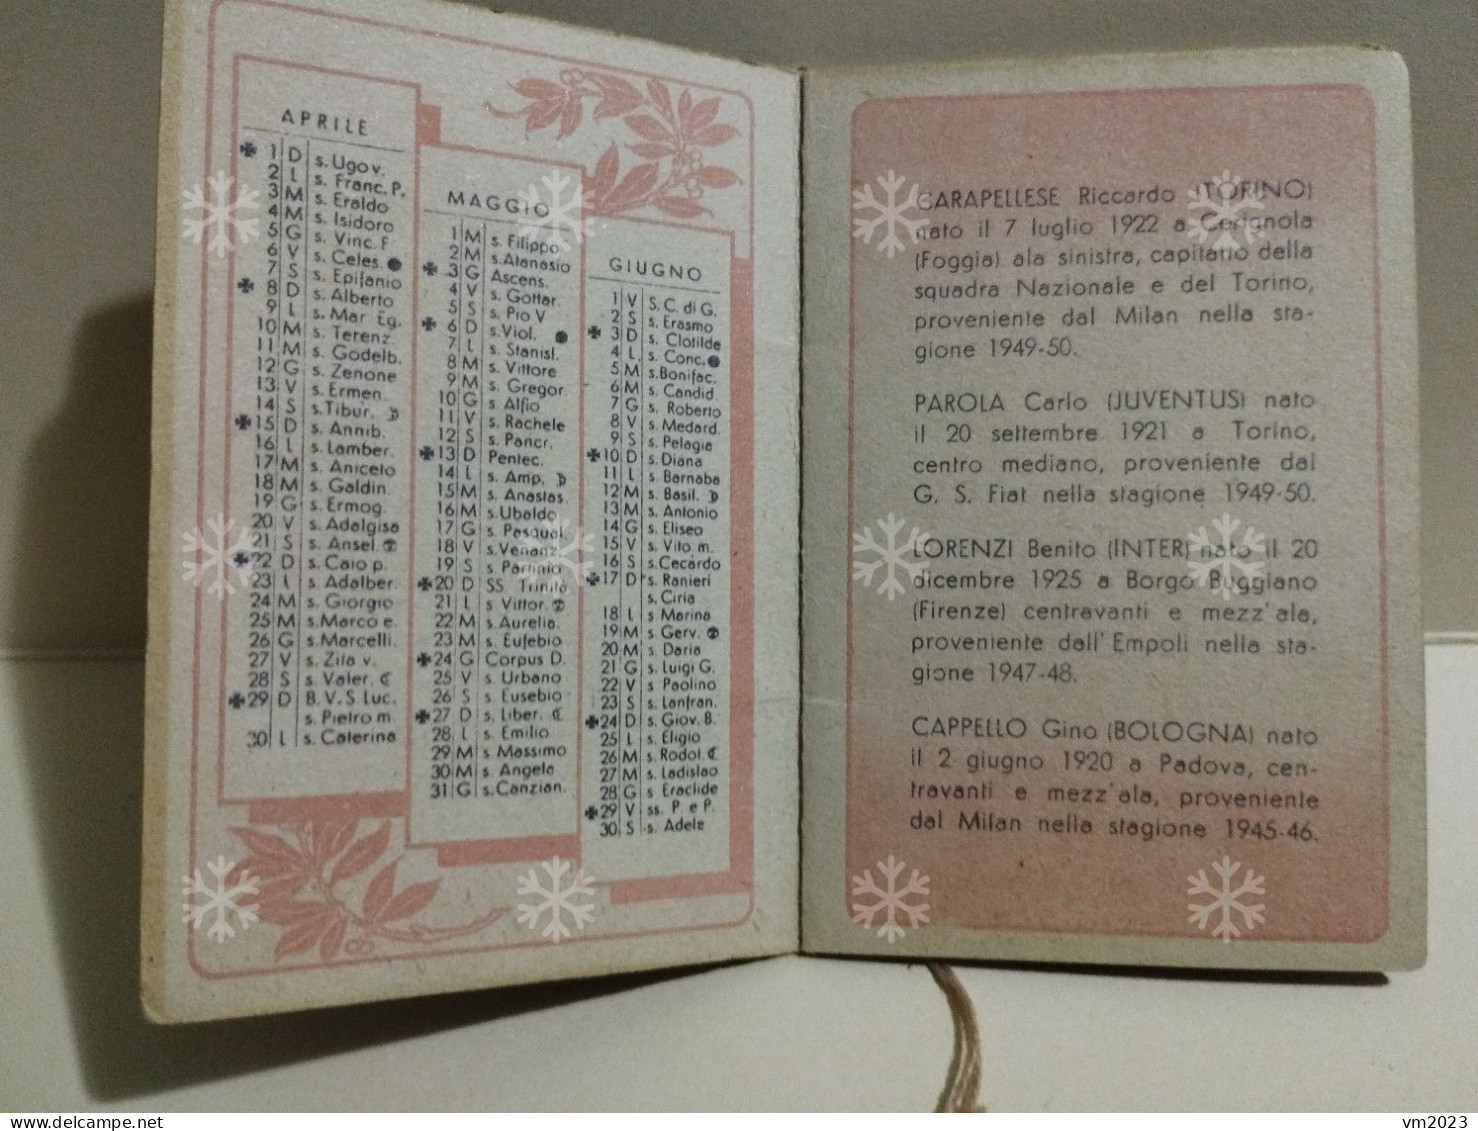 APRILE
✠ 1 D s. Ugo v.
2 L s. Franc. P.
3 M s. Eraldo
4 M s. Isidoro
5 G s. Vinc. F
6 V s. Celes. ●
7 S s. Epifanio
✠ 8 D s. Alberto
9 L s. Mar Eg.
10 M s. Terenz.
11 M s. Godelb.
12 G s. Zenone
13 V s. Ermen
14 S s. Tibur. ☽
✠ 15 D s. Annib.
16 L s. Lamber.
17 M s. Aniceto
18 M s. Galdin
19 G s. Ermog.
20 V s. Adalgisa
21 S s. Ansel.
✠ 22 D s. Caio p.
23 L s. Adalber.
24 M s. Giorgio
25 M s. Marco e.
26 G s. Marcell.
27 V s. Zita v.
28 S s. Valer. ☾
✠ 29 D B. V. S Luc.
s. Pietro m.
30 L s. Caterina
MAGGIO
1 M s. Filippo
2 M s. Atanasio
✠ 3 G Ascens.
4 V s. Gottar.
5 S s. Pio V
✠ 6 D s. Viol. ●
7 L s. Stanisl.
8 M s. Vittore
9 M s. Gregor
10 G s. Alfio
11 V s. Rachele
12 S s. Pancr.
✠ 13 D Pentec.
14 L s. Amp. ☽
15 M s. Anastas.
16 M s. Ubaldo
17 G s. Pasqual.
18 V s. Venanz.
19 S s. Partinio
✠ 20 D SS Trinità
21 L s Vittor.
22 M s. Aurelia
23 M s. Eufebio
✠ 24 G Corpus D.
25 V s. Urbano
26 S s. Eusebio
✠ 27 D s. Liber. ☾
28 L s. Emilio
29 M s. Massimo
30 M s. Angela
31 G s. Canzian.
GIUGNO
1 V S. C. di G.
2 S s. Erasmo
✠ 3 D s. Clotilde
4 L s. Conc. ●
5 M s. Bonifac.
6 M s. Candid
7 G s. Roberto
8 V s. Medard.
9 S s. Pelagia
✠ 10 D s. Diana
11 L s. Barnaba
12 M s. Basil. ☽
13 M s. Antonio
14 G s. Eliseo
15 V s. Vito m.
16 S s. Cecardo
✠ 17 D s. Ranieri
s. Ciria
18 L s. Marina
19 M s. Gerv.
20 M s. Daria
21 G s. Luigi G.
22 V s Paolino
23 S s. Lanfran.
✠ 24 D s. Giov. B.
25 L s. Eligio
26 M s. Rodol. ☾
27 M s. Ladislao
28 G s. Eraclide
✠ 29 V ss. P. e P.
30 S s. Adele
CARAPELLESE Riccardo (TORINO)
nato il 7 luglio 1922 a Cerignola
(Foggia) ala sinistra, capitano della
squadra Nazionale e del Torino,
proveniente dal Milan nella sta-
gione 1949-50.
PAROLA Carlo (JUVENTUS) nato
il 20 settembre 1921 a Torino,
centro mediano, proveniente dal
G. S. Fiat nella stagione 1949-50.
LORENZI Benito (INTER) nato il 20
dicembre 1925 a Borgo Buggiano
(Firenze) centravanti e mezz'ala,
proveniente dall'Empoli nella sta-
gione 1947-48.
CAPPELLO Gino (BOLOGNA) nato
il 2 giugno 1920 a Padova, cen-
travanti e mezz'ala, proveniente
dal Milan nella stagione 1945-46.
© delcampe.net
vm2023